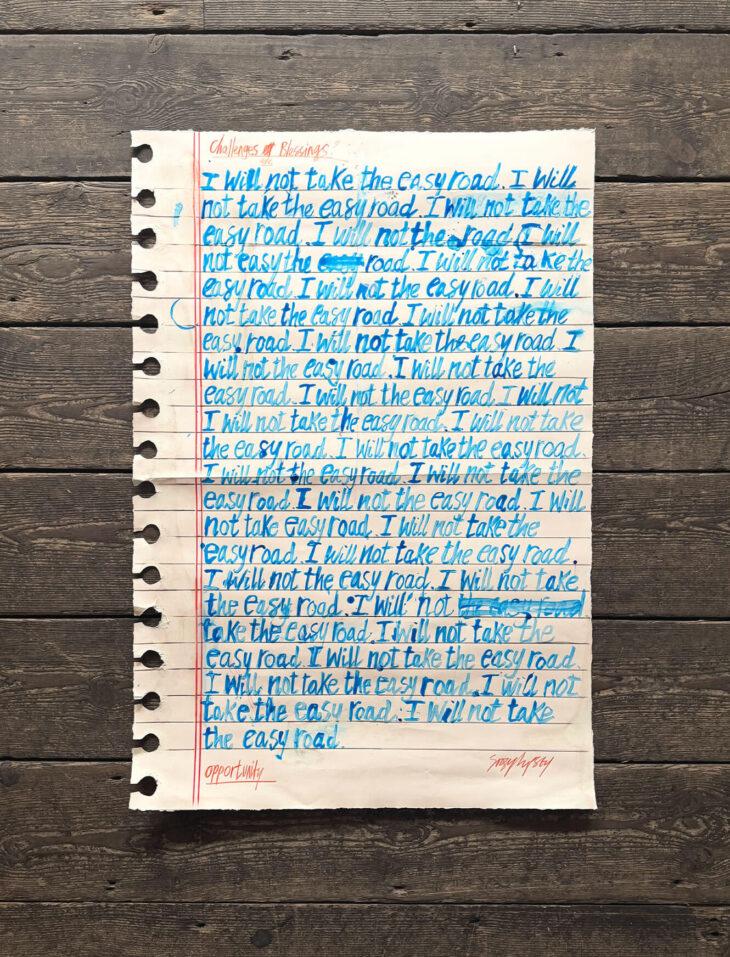 Challenges Blessings
I will not take the easy road. I will
not take the easy road. I will not take the
easy road. I will not the road I will
not easy the road. I will not take the
easy road. I will not the easy road. I will
not take the easy road. I will not take the
easy road. I will not take the easy road. I
will not the easy road. I will not take the
easy road. I will not the easy road. I will not
I will not take the easy road. I will not take
the easy road. I will not take the easy road.
I will not the easy road. I will not take the
easy road. I will not the easy road. I will
not take easy road. I will not take the
easy road. I will not take the easy road.
I will not the easy road. I will not take
the easy road. I will not
take the easy road. I will not take the
easy road. I will not take the easy road.
I will not take the easy road. I will not
take the easy road. I will not take
the easy road.
opportunity